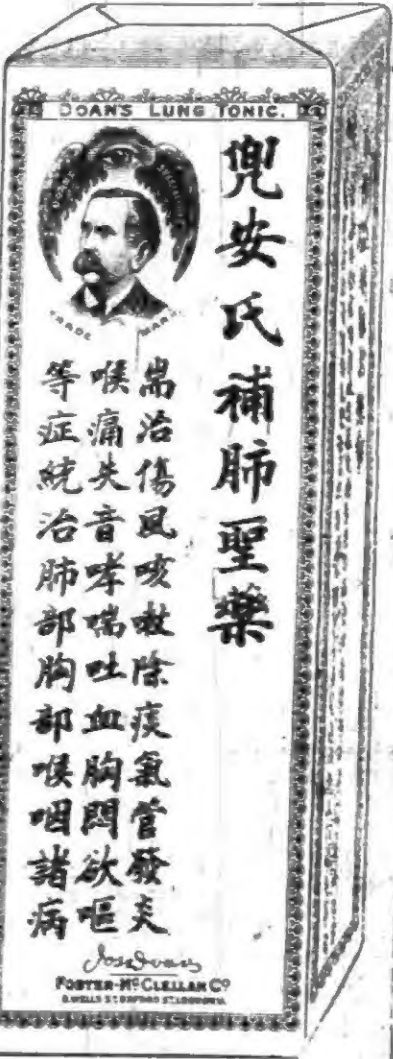 DOAN'S LUNG TONIC.
TRADE MARK
兜安氏補肺聖藥
耑治傷風咳嗽除痰氣管發炎
喉痛失音哮喘吐血胸悶欲嘔
等症統治肺部胸部喉咽諸病
Jos. Doan
FOSTER-McCLELLAN Co